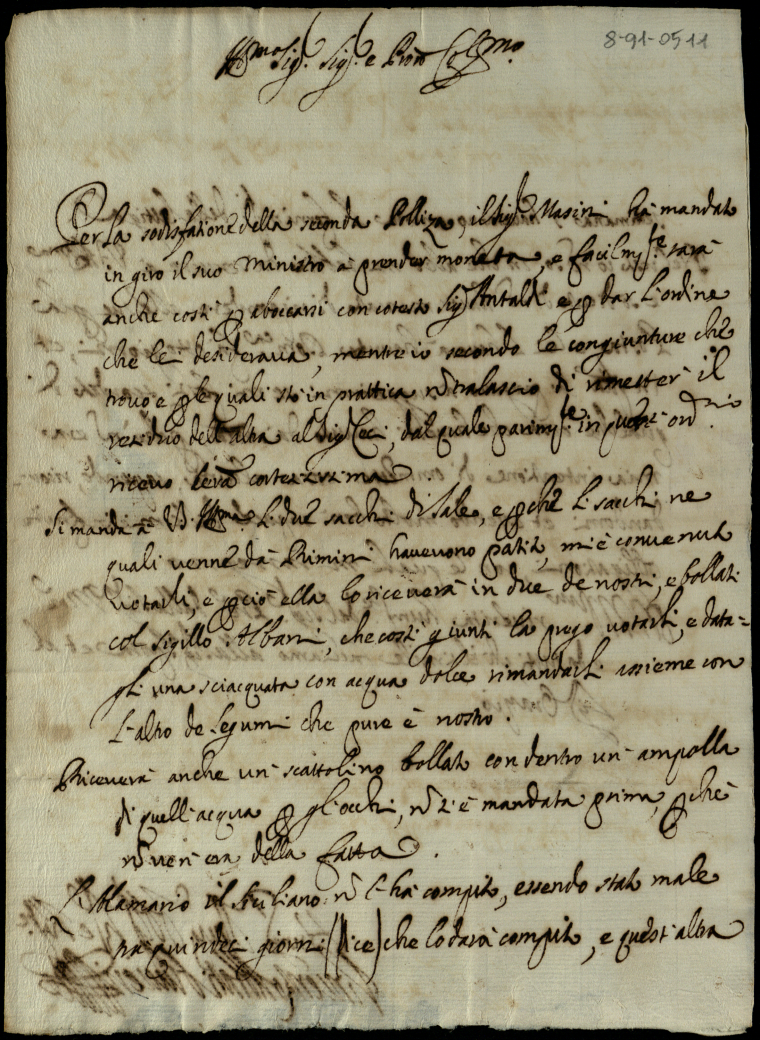 8-91-0511
Ill.mo Sig.r Sig.r e Pron Col.mo
Per la sodisfatione della seconda Polliza, il Sig.r Masini ha mandato
in giro il suo Ministro à prender moneta, e facilm.te sarà
anche costì p abocarsi con cotesto Sig.r Antaldi e p dar l'ordine
che lei desiderava, mentre io secondo le congiunture che
trovo e p le quali stò in prattica nõ tralascio di rimetter il
residuo dell'altra al Sig.r, dal quale parim.te in quest'ord.rio
ricevo l'cortesissima.
Si manda à V.S. Ill.ma li due sacchi di sale, e pche li sacchi ne
quali venne da Rimini havevono patito, mi è convenuto
votarli, e pciò ella lo riceverà in due de nostri, e bollati
col sigillo Albani, che costì giunti la prego votarli, e data=
gli una sciacquata con acqua dolce rimandarli assieme con
l'altro de legumi che pure è nostro.
Riceverà anche un scattolino bollato con dentro un'ampolla
di quell'acqua p gl'occhi, nõ s'è mandata prima, pchè
nõ ven'era della fatta.
L'Alamario il Siciliano nõ l'hà compito, essendo stato male
frà quindeci giorni (dice) che lo darà compito, e quest'altra